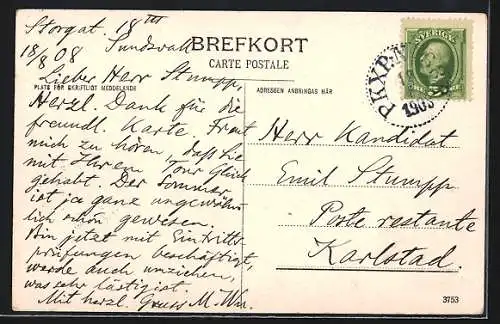 Storgat. 18 III
Sundsvall
18/8 08
BREFKORT
CARTE POSTALE
SVERIGE
PKXP. N
1908
Lieber Herr Stumpp,
PLATS FÖR SKRIFTLIGT MEDDELANDE
ADRESSEN ANBRINGAS HÄR
Herzl. Dank für die
freundl. Karte. Freut
mich zu hören, daß Sie
mit Ihrem Tour Glück
gehabt. Der Sommer
ist ja ganz ungewöhn-
lich schön gewesen.
Bin jetzt mit Eintritts
prüfungen beschäftigt,
werde auch umziehen,
was sehr lästig ist.
Mit herzl. Gruss M.
Herr Kandidat
Emil Stumpp
Poste restante
Karlstad
3753